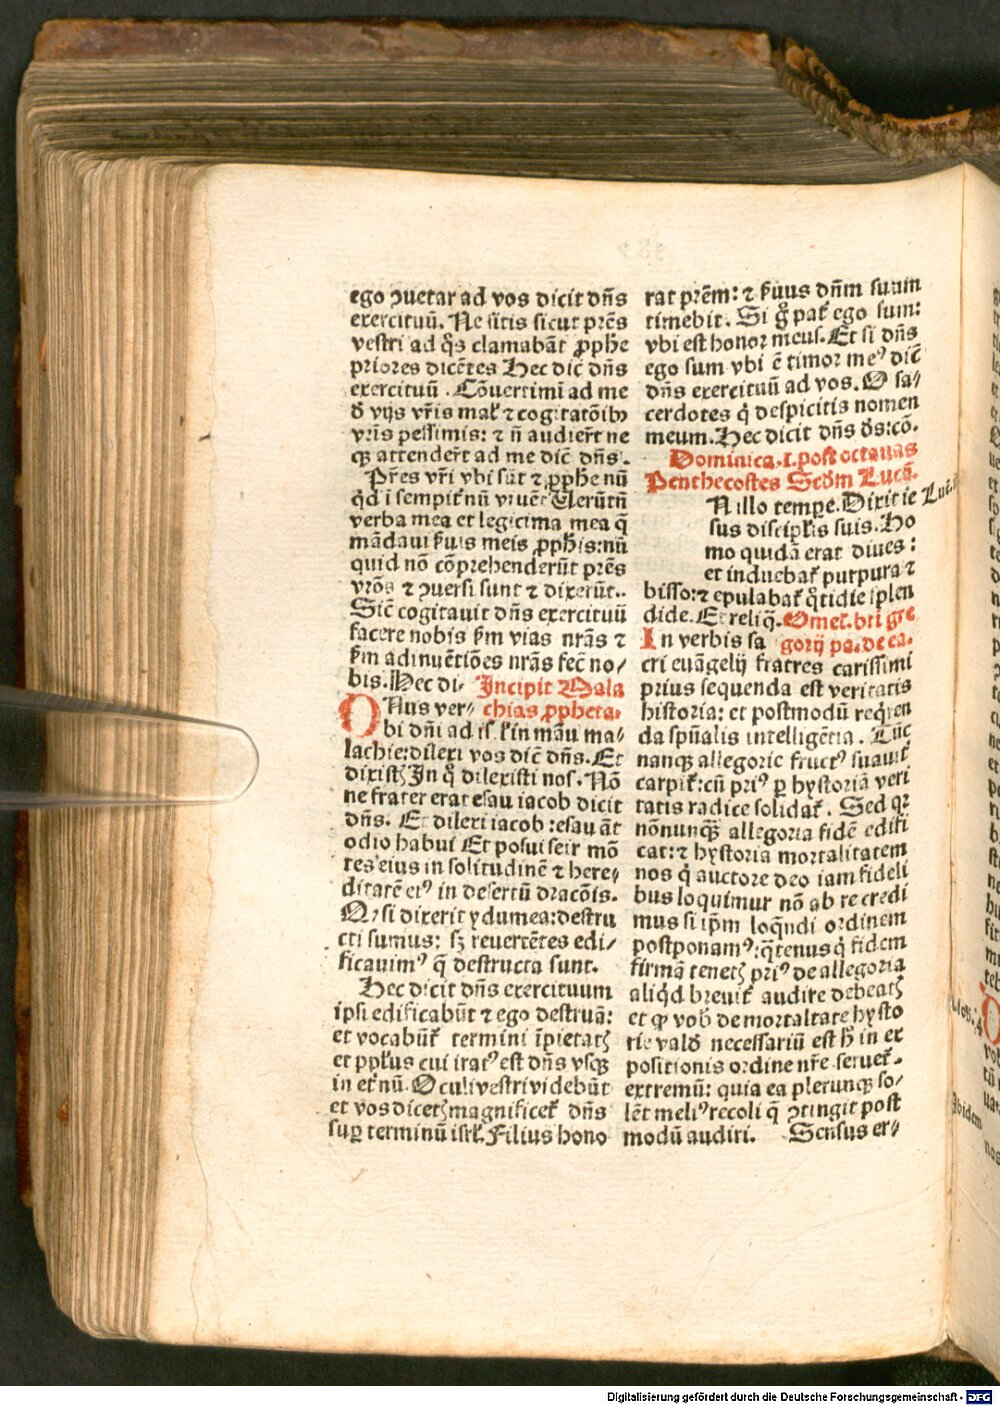 ego ↄuetar ad vos dicit dn̄s
exercituū. Ne sitis sicut pr̄es
vestri ad q̄s clamabāt ꝓphe
priores dicētes Hec dic̄ dn̄s
exercituū. Cōuertimī ad me
đ vijs vr̄is mal̄ ⁊ cogitatōibꝫ
vr̄is pessimis: ⁊ n̄ audier̄t ne
qꝫ attender̄t ad me dic̄ dn̄s.
Pr̄es vr̄i vbi sūt ⁊ ꝓphe nū
qd̄ ī sempit̄nū viuēt Uerūtn̄
verba mea et legitima mea q̄
mādaui ẜuis meis ꝓph̄is: nū
quid nō cōprehenderūt pr̄es
vr̄os ⁊ ↄuersi sunt ⁊ dixerūt..
Sic̄ cogitauit dn̄s exercituū
facere nobis ẜm vias nr̄as ⁊
ẜm adinuētiōes nr̄as fec̄ no/
bis. Hec di. Incipit Mala
ONus ver/ chias ꝓpheta.
bi dn̄i ad isr̄l in manu ma/
lachie: dilexi vos dic̄ dn̄s. Et
dixistꝫ In q̄ dilexisti nos. Nō
ne frater erat esau iacob dicit
dn̄s. Et dilexi iacob: esau āt
odio habui Et posui seir mō
tes eius in solitudinē ⁊ here/
ditatē eiꝰ in desertū dracōis.
Qꝛ si dixerit ydumea: destru
cti sumus: sꝫ reuertētes edi/
ficauimꝰ q̄ destructa sunt.
Hec dicit dn̄s exercituum
ipsi edificabūt ⁊ ego destruā:
et vocabūt̄ termini īpietatꝫ
et ppl̄us cui iratꝰ est dn̄s vsqꝫ
in et̄nū. Oculi vestri videbūt
et vos dicetꝫ magnificet̄ dn̄s
suꝑ terminū isr̄l. Filius hono
rat pr̄em: ⁊ ẜuus dn̄m suum
timebit. Si g̊ pat̄ ego sum:
vbi est honor meus. Et si dn̄s
ego sum vbi ē timor meꝰ dic̄
dn̄s exercituū ad vos. O sa/
cerdotes q̄ despicitis nomen
meum. Hec dicit dn̄s ds̄: cō.
Dominica. I. post octauas
Penthecostes Scd̄m Lucā.
N illo tempe. Dixit ie Luc.
sus discipl̄is suis. Ho
mo quidā erat diues:
et induebat̄ purpura ⁊
bisso: ⁊ epulabat̄ q̄tidie splen
dide. Et reliq̄. Omel̄. bt̄i gre
In verbis sa gorij pa. de ea.
cri euāgelij fratres carissimi
prius sequenda est veritatis
historia: et postmodū reqren
da spūalis intelligētia. Tūc
nanqꝫ allegorie fructꝰ suauit̄
carpit̄: cū priꝰ ꝑ hystoriā veri
tatis radice solidat̄. Sed qꝛ
nōnunqꝫ allegoria fidē edifi
cat: ⁊ hystoria mortalitatem
nos q̄ auctore deo iam fideli
bus loquimur nō ab re credi
mus si ip̄m loq̄ndi ordinem
postponamꝰ: q̄tenus q̄ fidem
firmā tenetꝫ priꝰ de allegoria
aliqd̄ breuit̄ audire debeatꝫ
et qꝫ vob̄ de mortaltate hysto
rie vald̄ necessariū est h̄ in ex
positionis ordine nr̄e seruet̄.
extremū: quia ea plerunqꝫ so/
lēt meliꝰ recoli q̄ ↄtingit post
modū audiri. Sensus er/
Ibidem
Digitalisierung gefördert durch die Deutsche Forschungsgemeinschaft - DFG